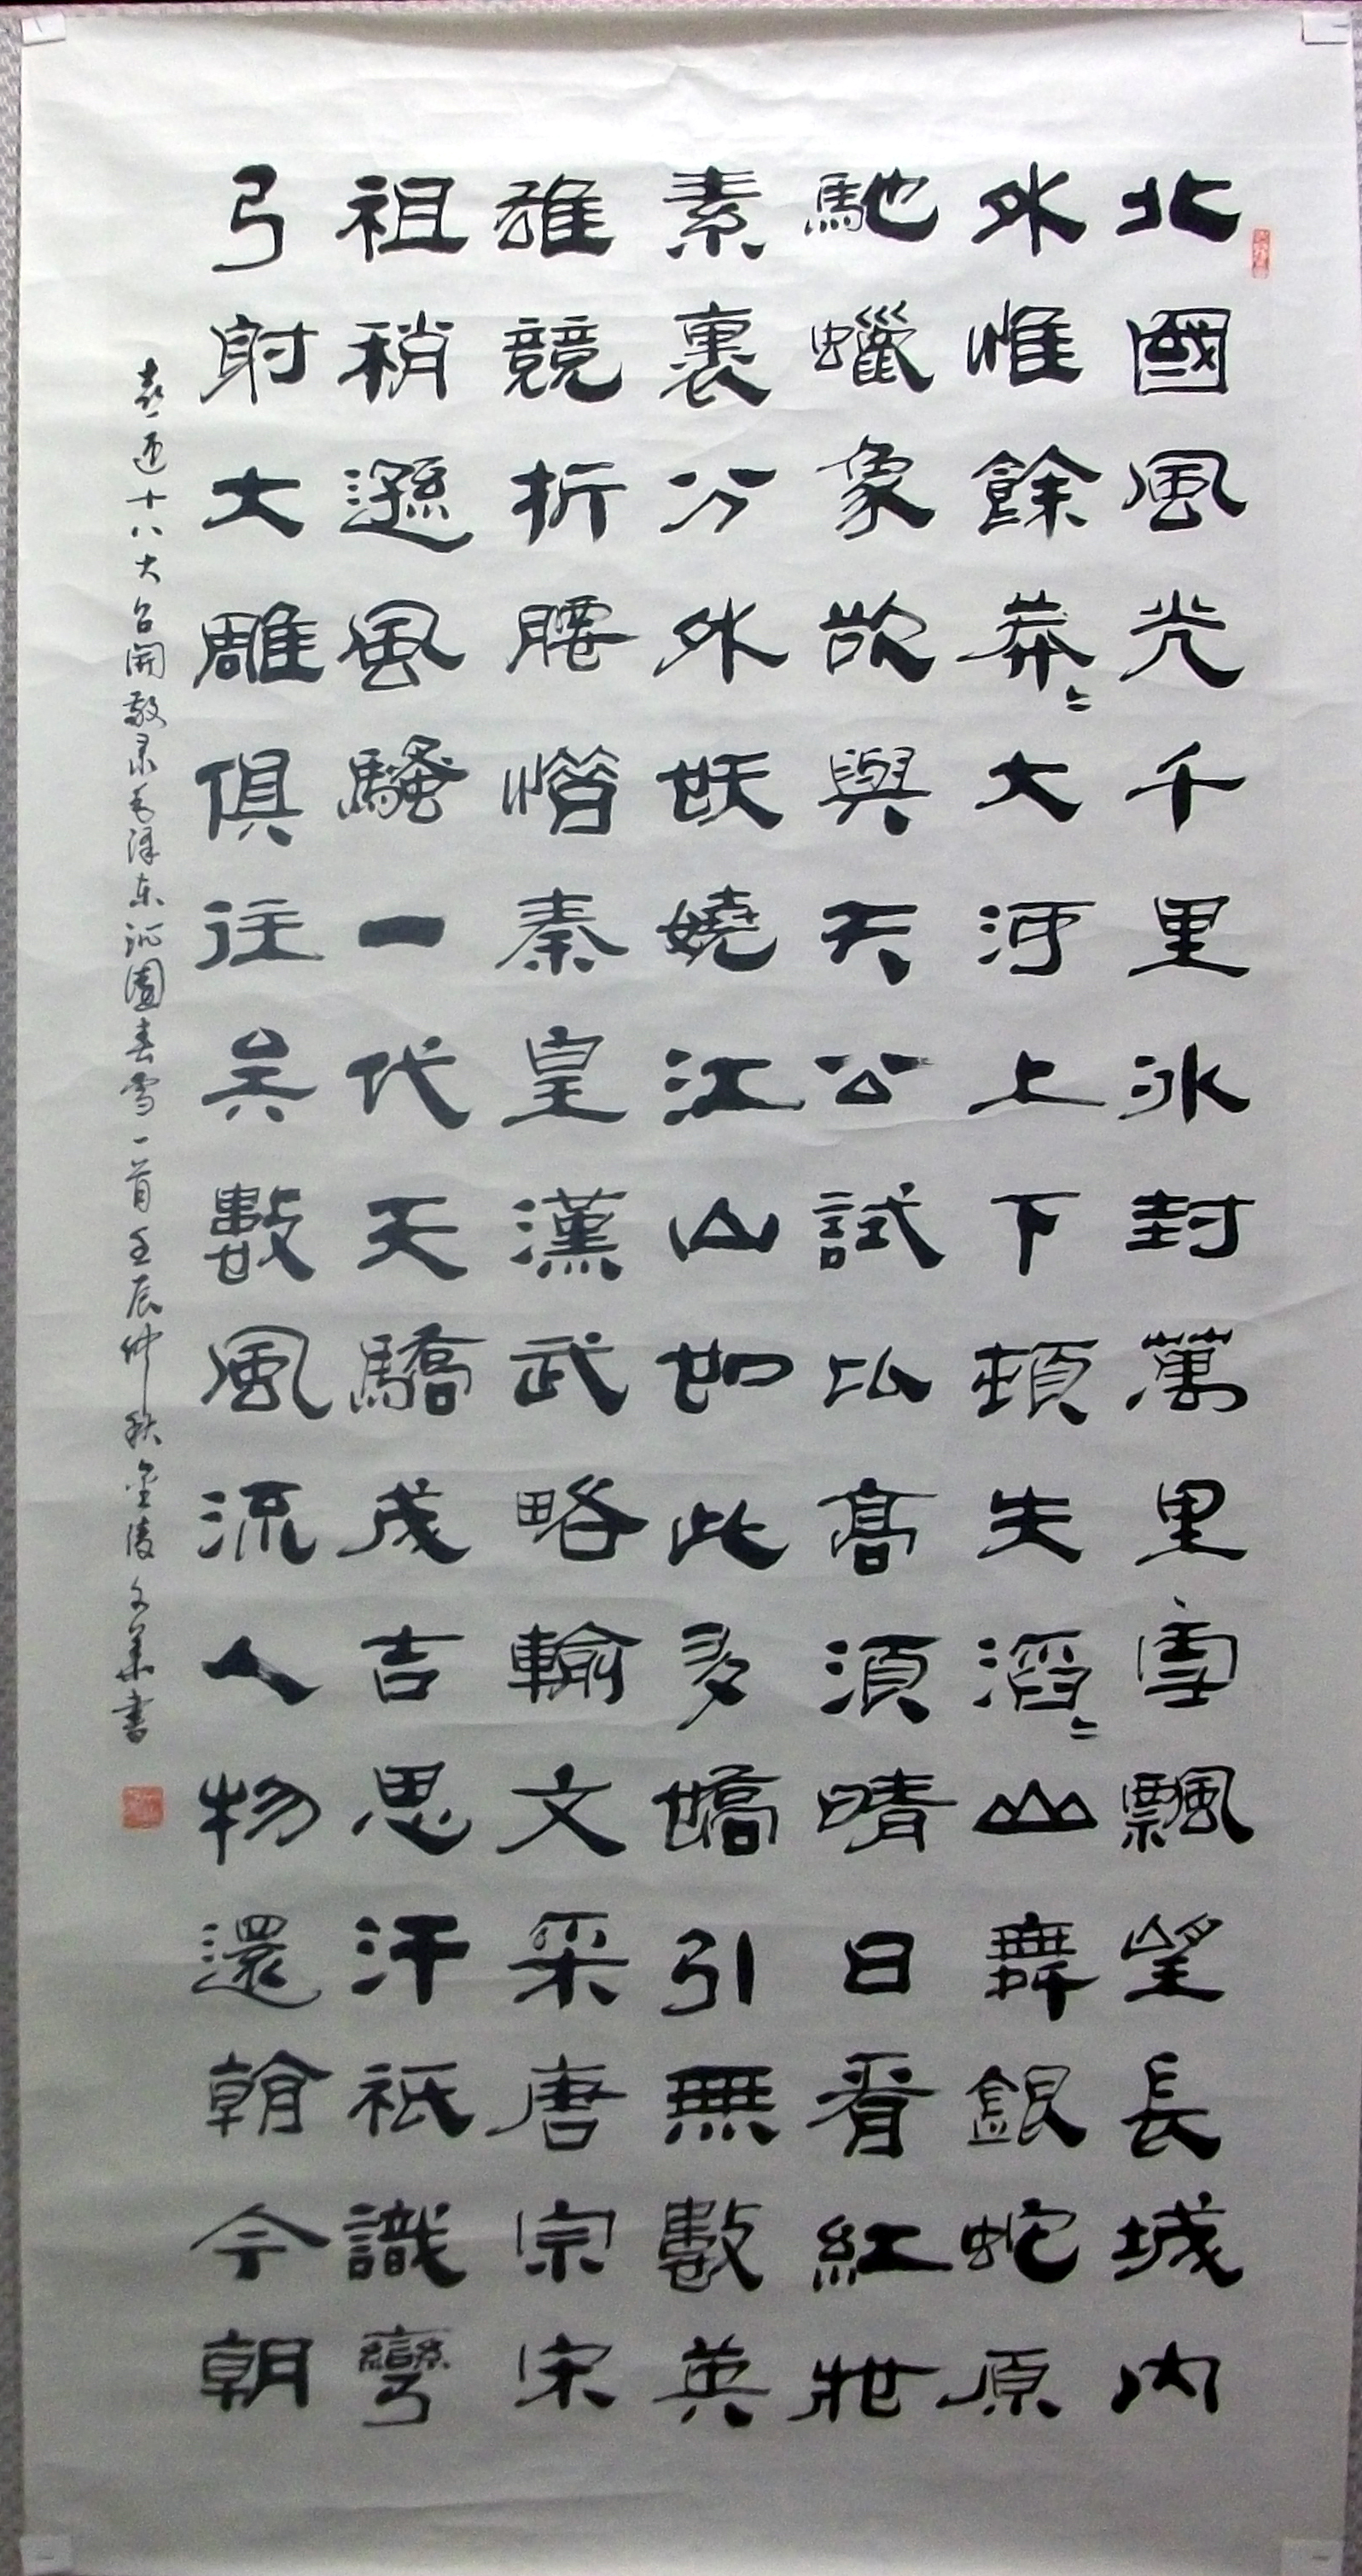 北國風光千里冰封萬里雪飄望長城內
外惟餘莽〻大河上下頓失滔〻山舞銀蛇原
馳蠟象欲與天公試比高須晴日看紅妝
素裹分外妖嬈江山如此多嬌引無數英
雄競折腰惜秦皇漢武略輸文采唐宗宋
祖稍遜風騷一代天驕成吉思汗祇識彎
弓射大雕俱往矣數風流人物還看今朝
喜迎十八大召開敬录毛泽东沁園春雪一首壬辰仲秋金陵文華书